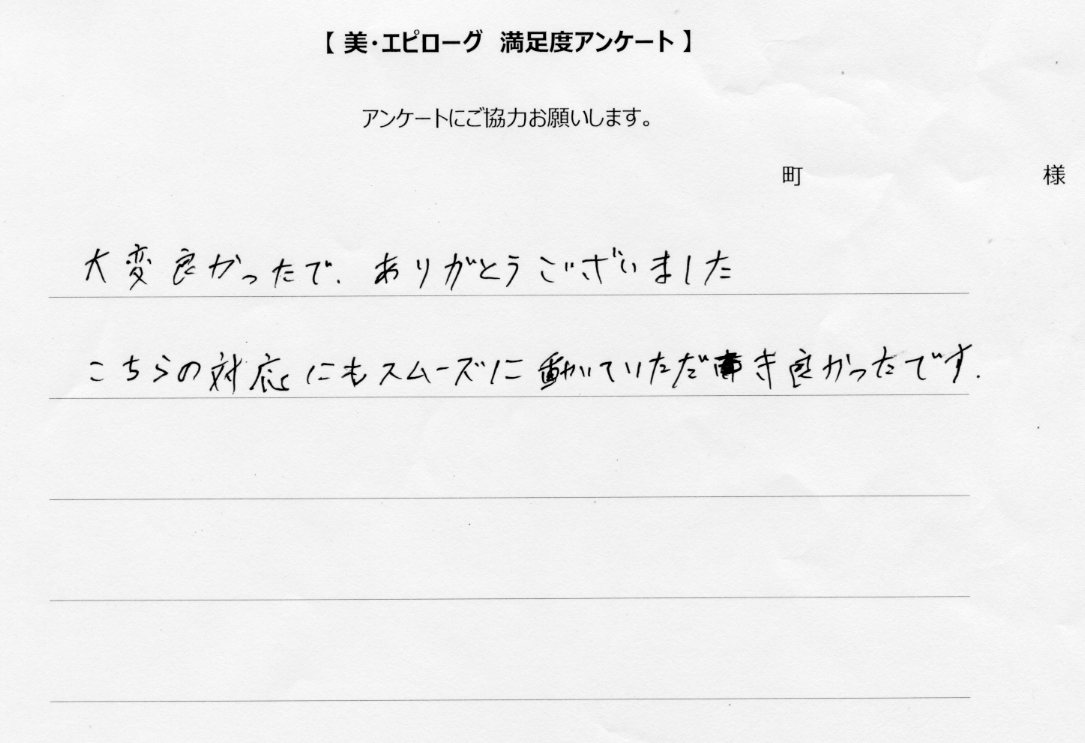 【 美・エピローグ 満足度アンケート 】
アンケートにご協力お願いします。
町 様
大変良かったで。ありがとうございました
こちらの対応にもスムーズに動いていただき良かったです。